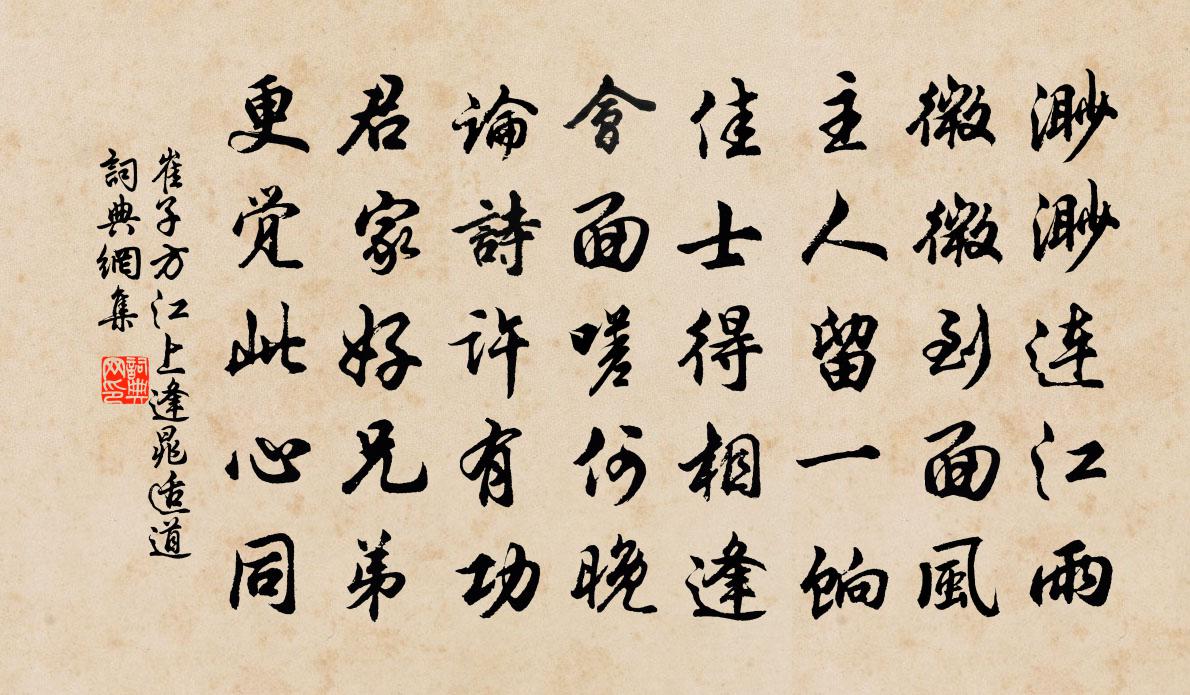 渺渺连江雨
微微到面風
主人留一餉
佳士得相逢
會面嗟何晚
論詩許有功
君家好兄弟
更觉此心同
崔子方江上逢晁适道
詞典網集
詞典网印